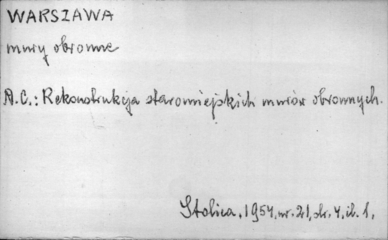 WARSZAWA
mury obronne
A.C.: Rekonstrukcja staromiejskich murów obronnych.
Stolica, 1954, nr. 21, str. 4, il. 1.